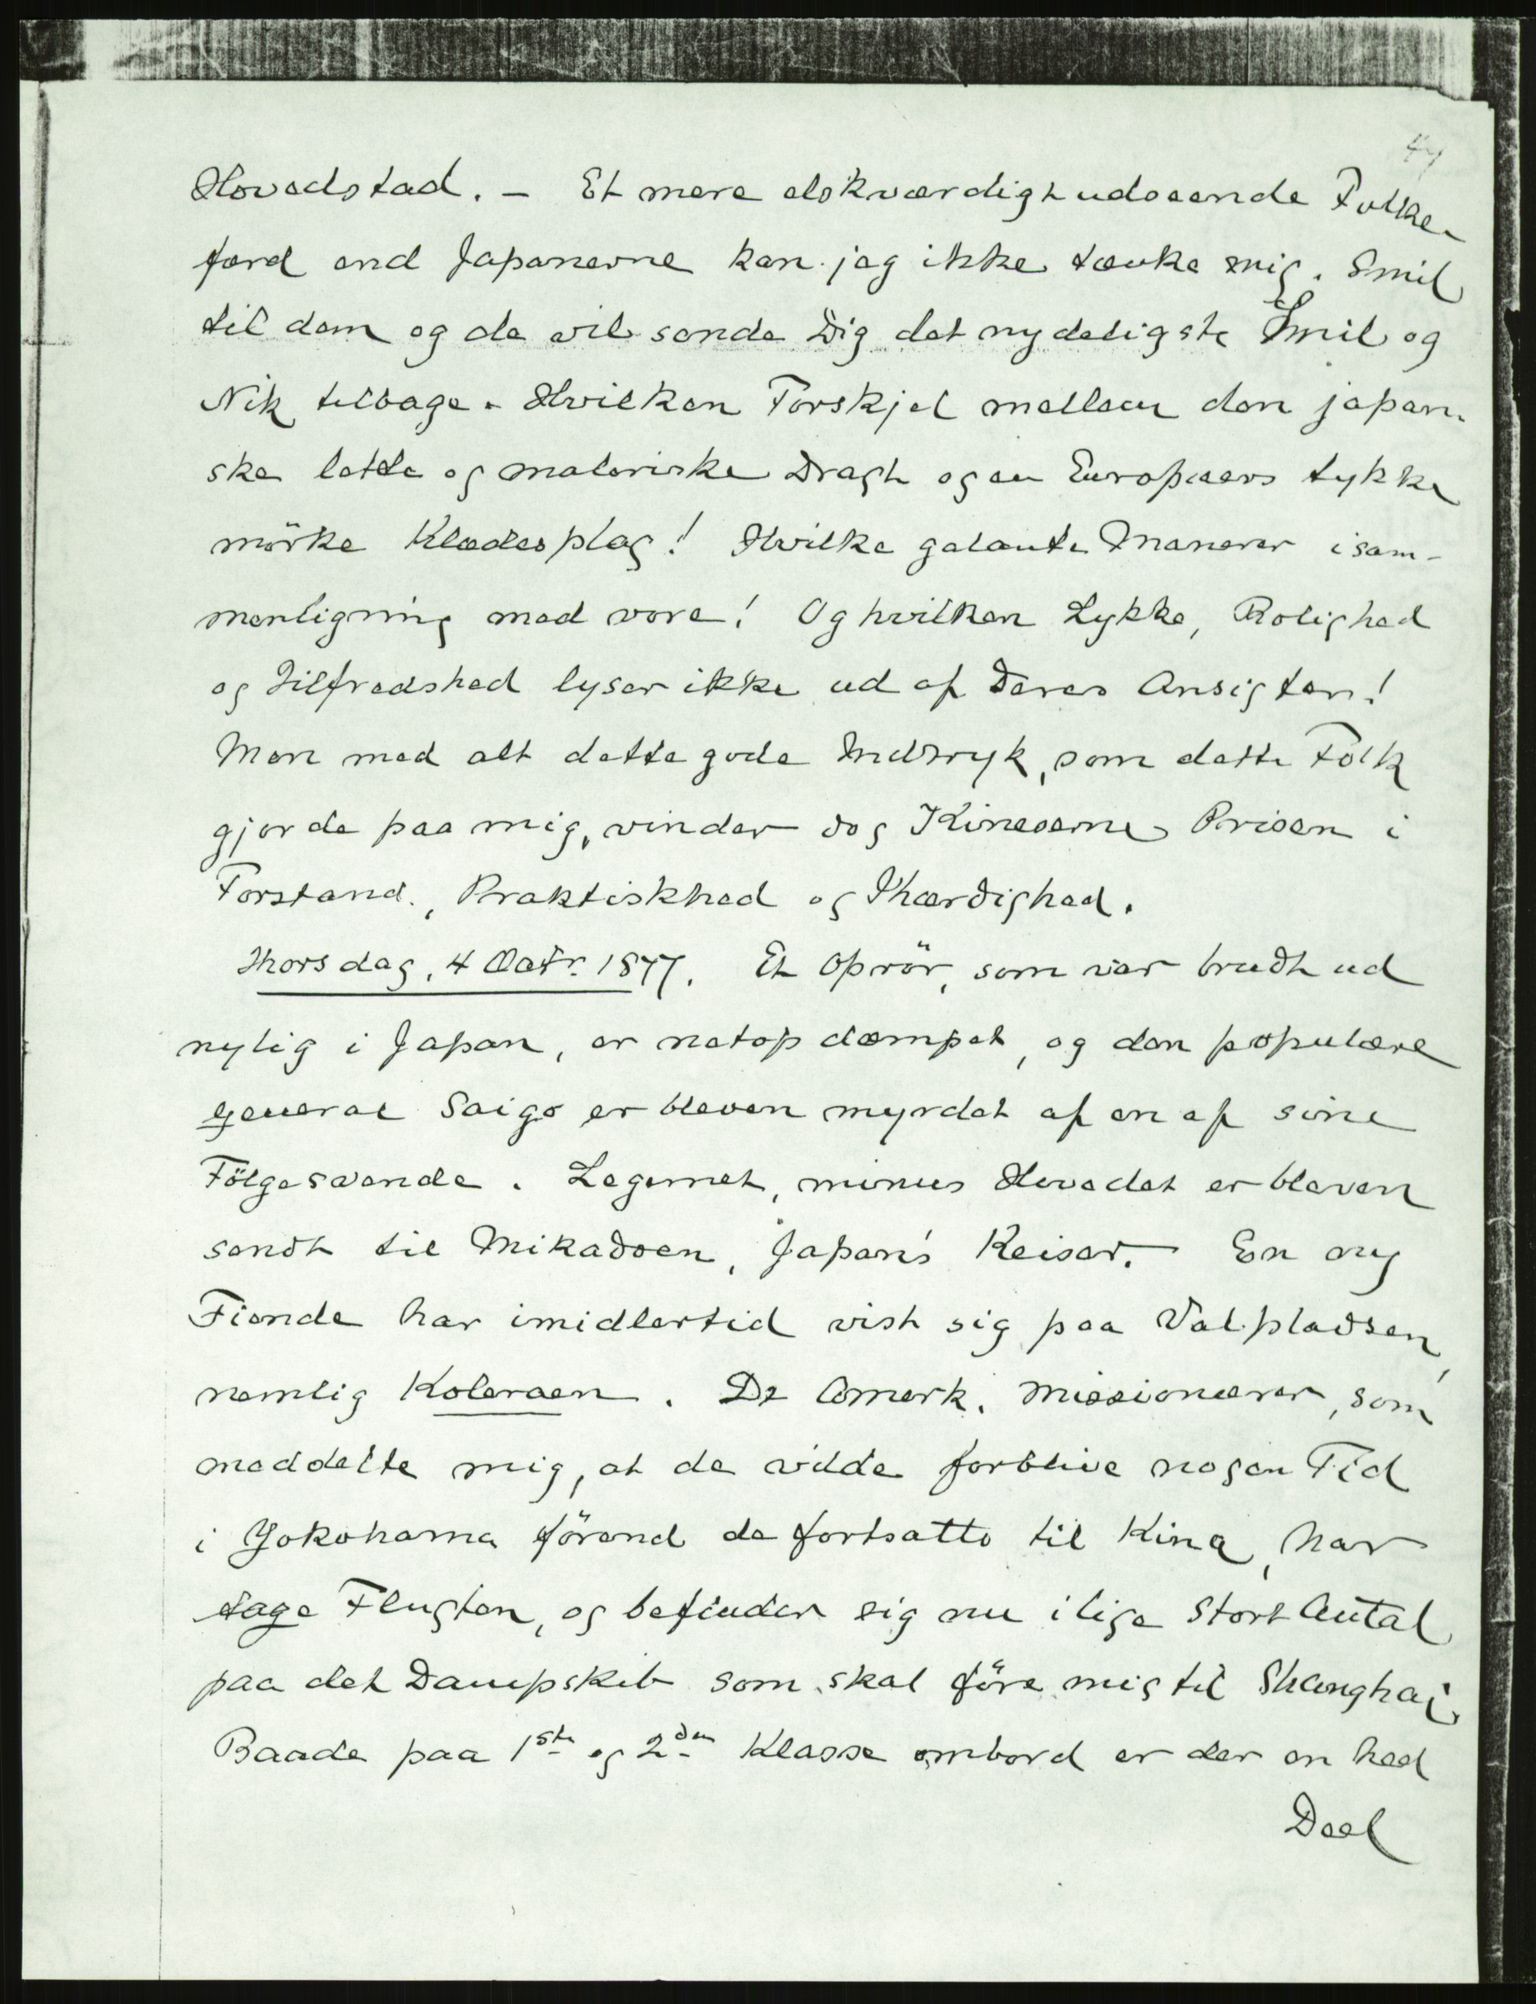 44
Hovedstad. – Et mere elskværdigt udseende Folke-
færd end Japanerne kan jeg ikke tænke mig. Smil
til dem og de vil sende Dig det nydeligste Smil og
Nik tilbage. Hvilken Forskjel mellem den japan-
ske lette og maleriske Dragt og en Europæers tykke
mörke Klædesplag! Hvilke galante Manerer i sam-
menligning med vore! Og hvilken Lykke, Rolighed
og Tilfredshed lyser ikke ud af Deres Ansigter!
Men med alt dette gode Indtryk, som dette Folk
gjorde paa mig, vinder dog Kineserne Prisen i
Forstand, Praktiskhed og Ihærdighed.
Thorsdag, 4 Octr. 1877. Et Oprör, som var brudt ud
nylig i Japan, er netop dæmpet, og den populære
General Saigo er bleven myrdet af en af sine
Fölgesvende. Legemet, minus Hovedet er bleven
sendt til Mikadoen, Japan's Keiser. En ny
Fiende har imidlertid vist sig paa Valpladsen,
nemlig Koleraen. De Amerk. Missionærer, som
meddelte mig, at de vilde forblive nogen Tid
i Yokohama förend de fortsatte til Kina, har
tage Flugten, og befinder sig nu i lige stort Antal
paa det Dampskib som skal före mig til Shanghai.
Baade paa 1ste og 2den Klasse ombord er der en hed
Deel